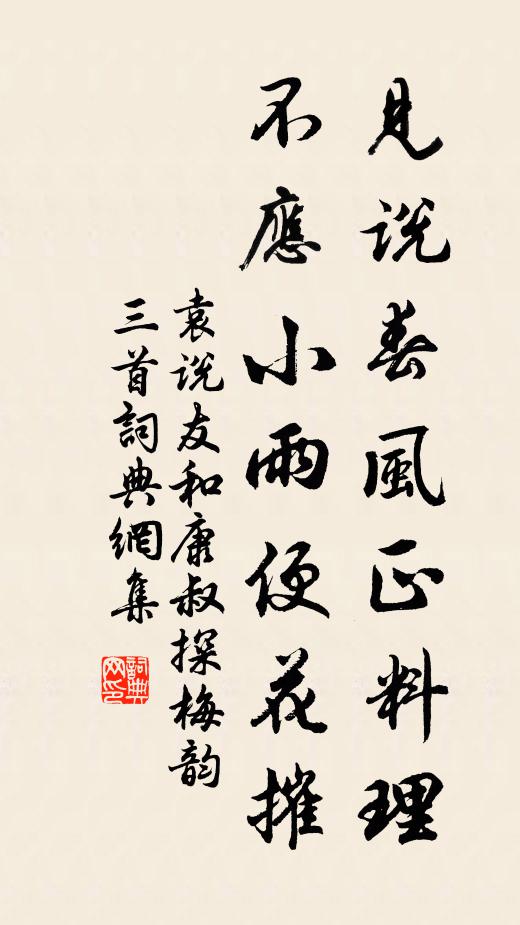 見說春風正料理
不應小雨便花摧
袁說友和康叔探梅韵
三首詞典網集
詞典
网印